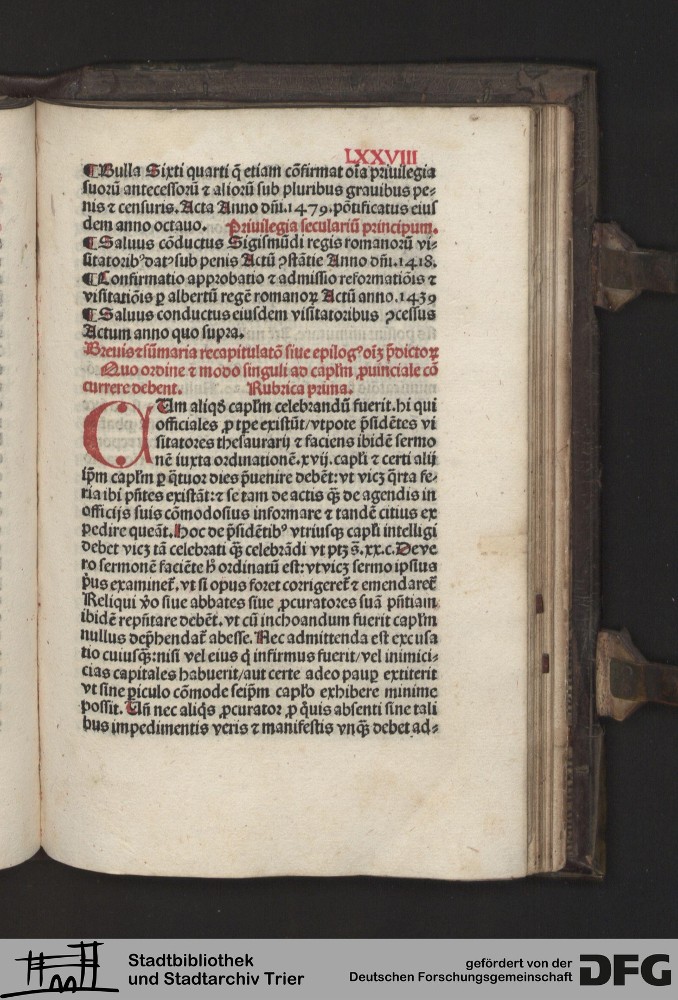 LXXVIII
¶Bulla Sixti quarti q̄ etiam cōfirmat oīa priuilegia
suorū antecessorū ⁊ aliorū sub pluribus grauibus pe⸗
nis ⁊ censuris. Acta Anno dñi. 1479. põtificatus eius
dem anno octauo. Priuilegia seculariū principum.
¶Saluus cōductus Sigismūdi regis romanorū vi⸗
sitatoribꝰ datꝰ sub penis Actū ꝯstātie Anno dñi. 1418.
¶Confirmatio approbatio ⁊ admissio reformatiōis ⁊
visitatiōis ꝑ albertū regē romanoꝝ Actū anno. 1439
¶Saluus conductus eiusdem visitatoribus ꝯcessus
Actum anno quo supra.
Breuis ⁊ sūmaria recapitulatō siue epilogꝰ oīꝫ p̄dictoꝝ
Quo ordine ⁊ modo singuli ad capl̄m ꝓuinciale cō
currere debent. Rubrica prima.
CUm aliqḋ capl̄m celebrandū fuerit. hi qui
officiales ꝓ tꝑe existūt/vtpote p̄sidētes vi
sitatores thesaurarij ⁊ faciens ibidē sermo
nē iuxta ordinationē. xvij. capl̓i ⁊ certi alij
ip̄m capl̄m ꝑ q̄tuor dies p̄uenire debēt: vt vicꝫ q̄rta fe⸗
ria ibi p̄ntes existāt: ⁊ se tam de actis qꝫ̄ de agendis in
officijs suis cōmodosius informare ⁊ tandē citius ex
pedire queāt. Hoc de p̄sidētibꝰ vtriusqꝫ capl̓i intelligi
debet vicꝫ tā celebrati qꝫ̄ celebrādi vt ptꝫ s̄. xx. c. De ve
ro sermonē faciēte h̓ ordinatū est: vt vicꝫ sermo ipsius
p̓us examinet᷑. vt si opus foret corrigeret᷑ ⁊ emendaret᷑
Reliqui v̓o siue abbates siue ꝓcuratores suā p̄ntiam
ibidē rep̄ntare debēt. vt cū inchoandum fuerit capl̄m
nullus dep̄hendat᷑ abesse. Nec admittenda est excusa
tio cuiusqꝫ̄: nisi vel eius q̇ infirmus fuerit/vel inimici⸗
cias capitales habuerit/aut certe adeo paup̱ extiterit
vt sine ꝑiculo cōmode seip̄m capl̓o exhibere minime
possit. Uñ nec aliq̇s ꝓcurator ꝓ quis absenti sine tali
bus impedimentis veris ⁊ manifestis vnqꝫ̄ debet ad⸗
Stadtbibliothek
und Stadtarchiv Trier
gefördert von der
Deutschen Forschungsgemeinschaft
DFG